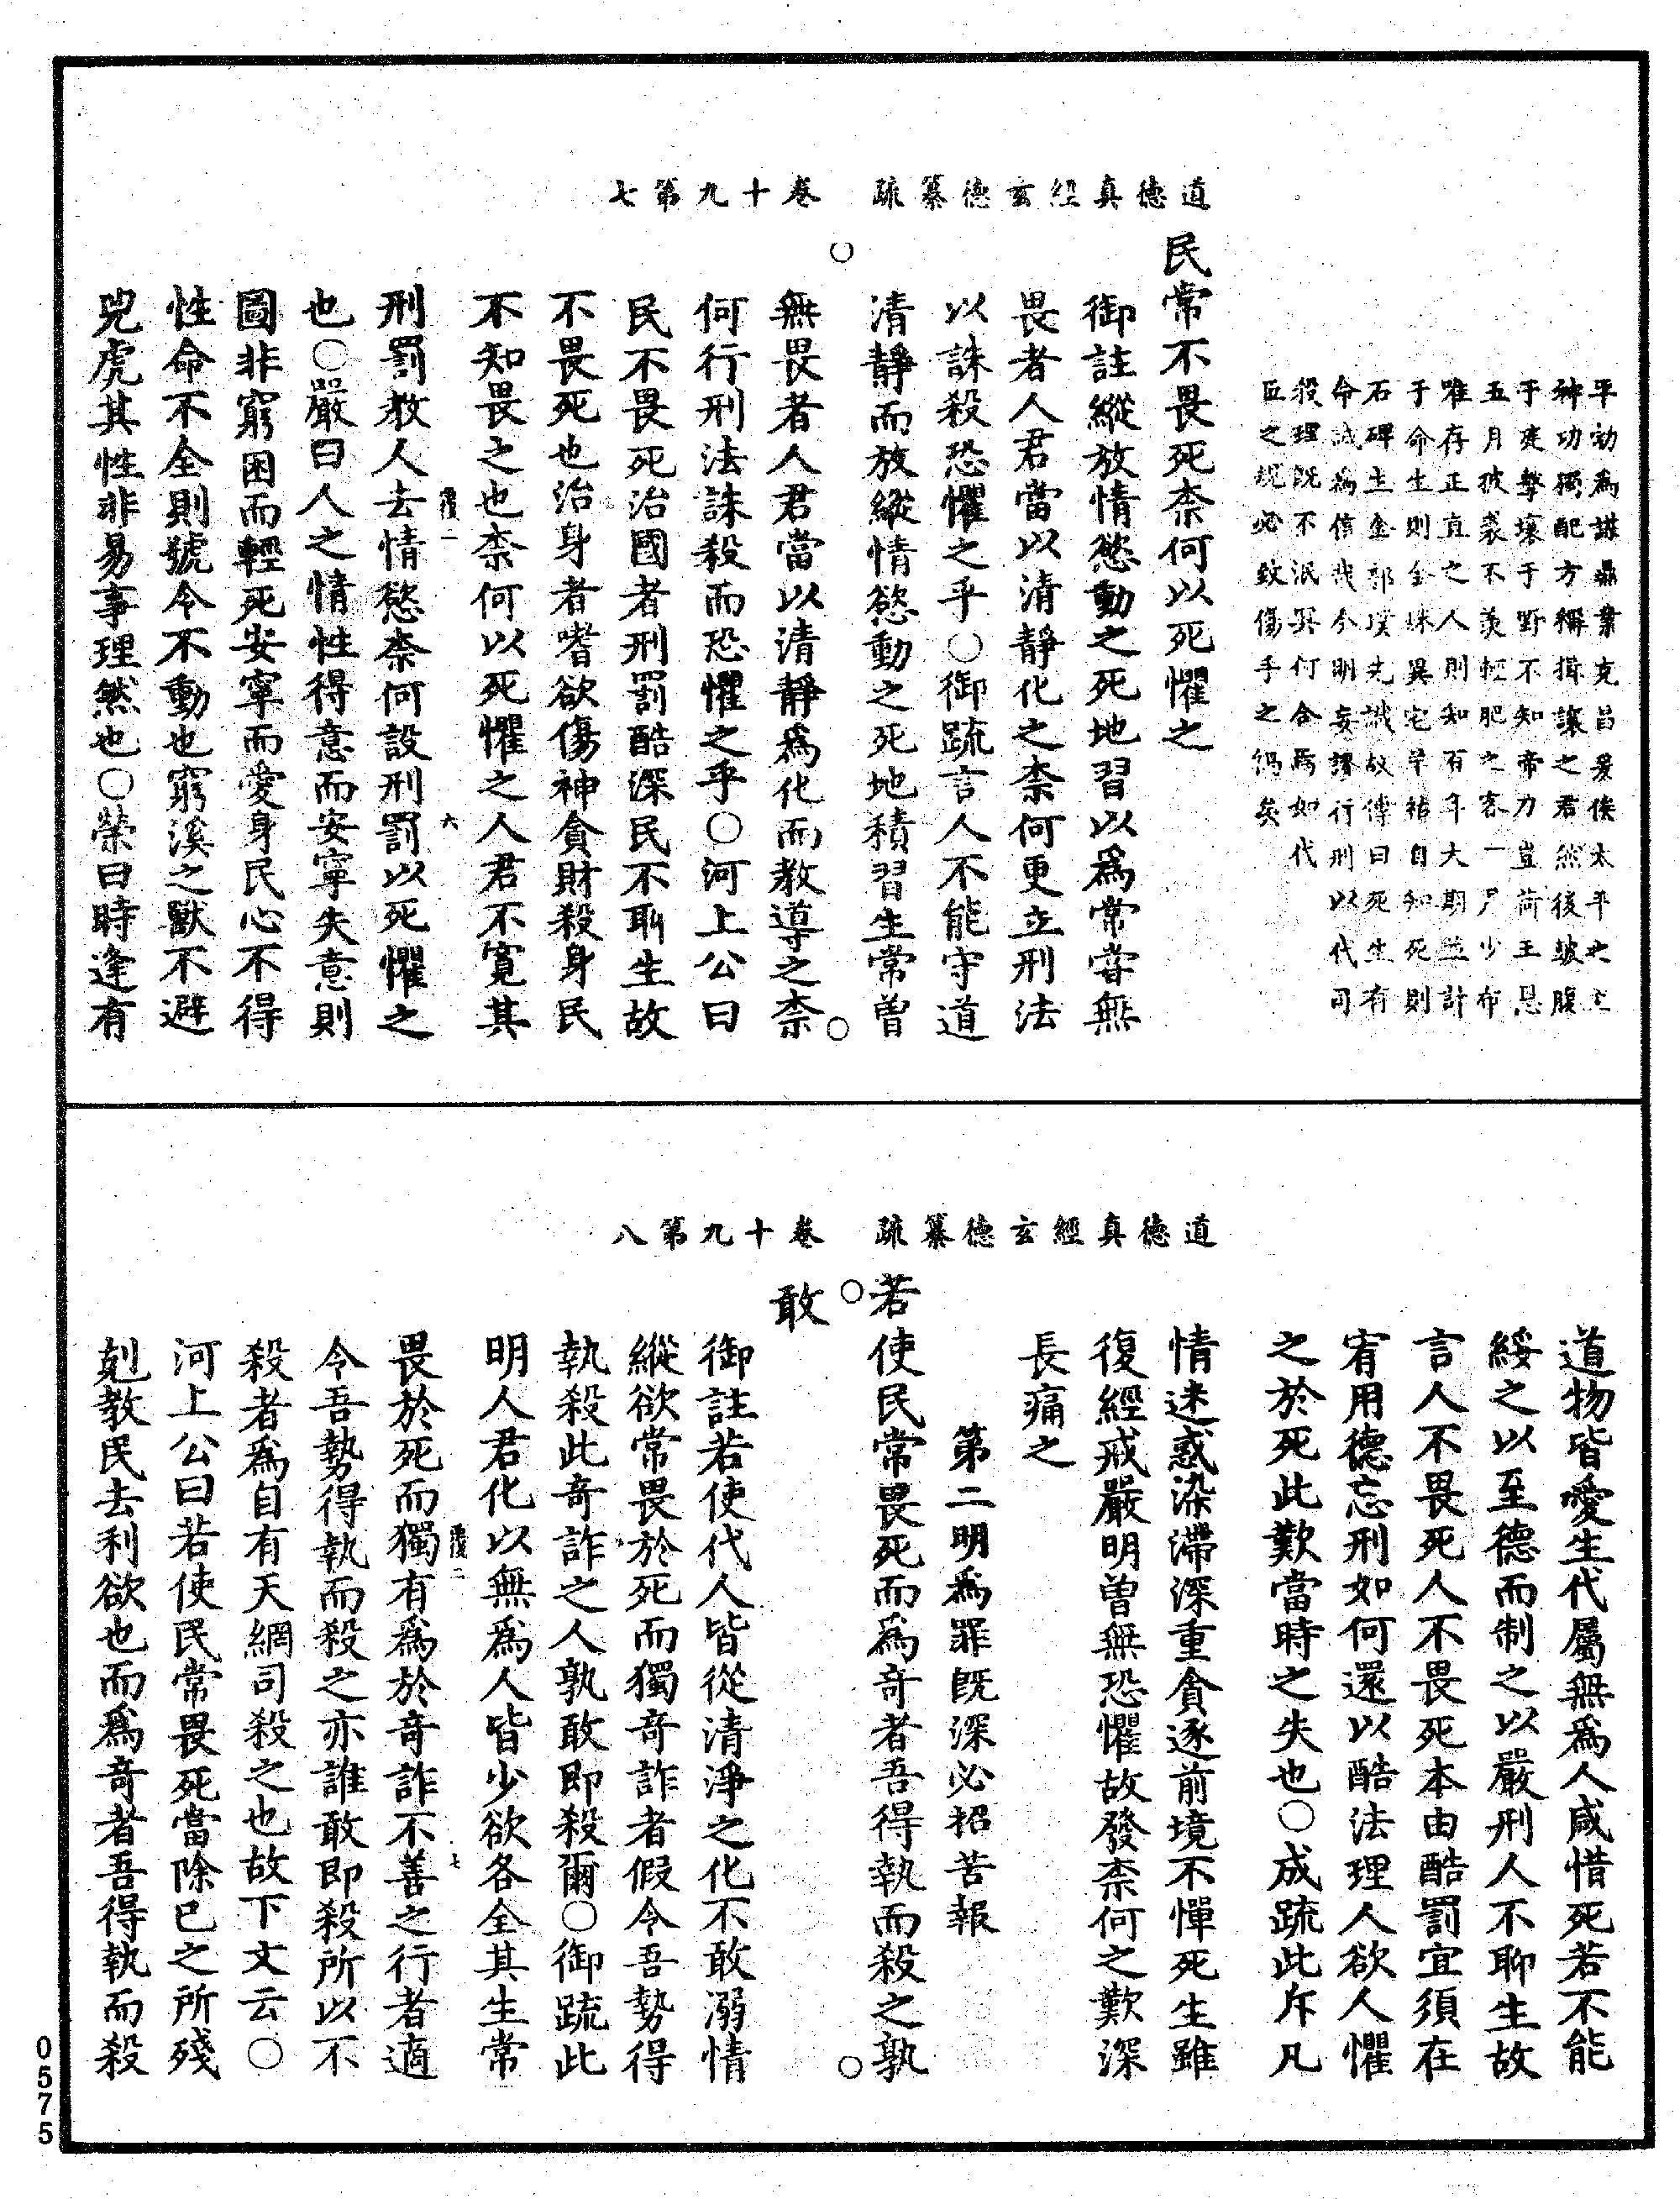 道德真經玄德纂疏　卷十九第七
平勃為謀鼎業克昌爰俟太平之
神功獨配方稱揖讓之君然後皷腹
于庭擊壤于野不知帝力豈荷王恩
五月披裘不羨輕肥之客一尸少布
唯存正直之人則知有年大期並計
于命生則全姝異宅卒猪自知死則
石碑生金郭璞先誡故傳曰死生有
命誠為信哉今明妄謂行刑以代司
殺理既不泯冥何舍焉如代
匠之規必致傷手之禍矣
民常不畏死柰何以死懼之
御註縱放情慾動之死地習以爲常甞無
畏者人君當以清靜化之柰何更立刑法
以誅殺恐懼之乎〇御疏言人不能守道
清靜而放縱情慾動之死地積習生常曾
無畏者人君當以清靜爲化而教導之柰
何行刑法誅殺而恐懼之乎〇河上公曰
民不畏死治國者刑罰酷深民不聊生故
不畏死也治身者嗜欲傷神貪財殺身民
不知畏之也柰何以死懼之人君不寬其
覆二　六
刑罰教人去情慾柰何設刑罰以死懼之
也〇嚴曰人之情性得意而安寧失意則
圖非窮困而輕死安寧而愛身民心不得
性命不全則號令不動也窮溪之獸不避
兕虎其性非易事理然也〇榮曰時逢有
道德真經玄德纂疏　卷十九第八
道物皆愛生代屬無爲人咸惜死若不能
綏之以至德而制之以嚴刑人不聊生故
言人不畏死人不畏死本由酷罰宜須在
宥用德忘刑如何還以酷法理人欲人懼
之於死此歎當時之失也〇成疏此斥凡
情迷惑染滯深重貪逐前境不憚死生雖
復經戒嚴明曾無恐懼故發柰何之歎深
長痛之
第二明爲罪旣深必招苦報
若使民常畏死而爲奇者吾得執而殺之孰
敢
御註若使代人皆從清淨之化不敢溺情
縱欲常畏於死而獨奇詐者假令吾勢得
執殺此奇詐之人孰敢即殺爾〇御疏此
明人君化以無爲人皆少欲各全其生常
覆二　七
畏於死而獨有爲於奇詐不善之行者適
令吾勢得執而殺之亦誰敢即殺所以不
殺者爲自有天網司殺之也故下文云〇
河上公曰若使民常畏死當除已之所殘
剋教民去利欲也而爲奇者吾得執而殺
0575